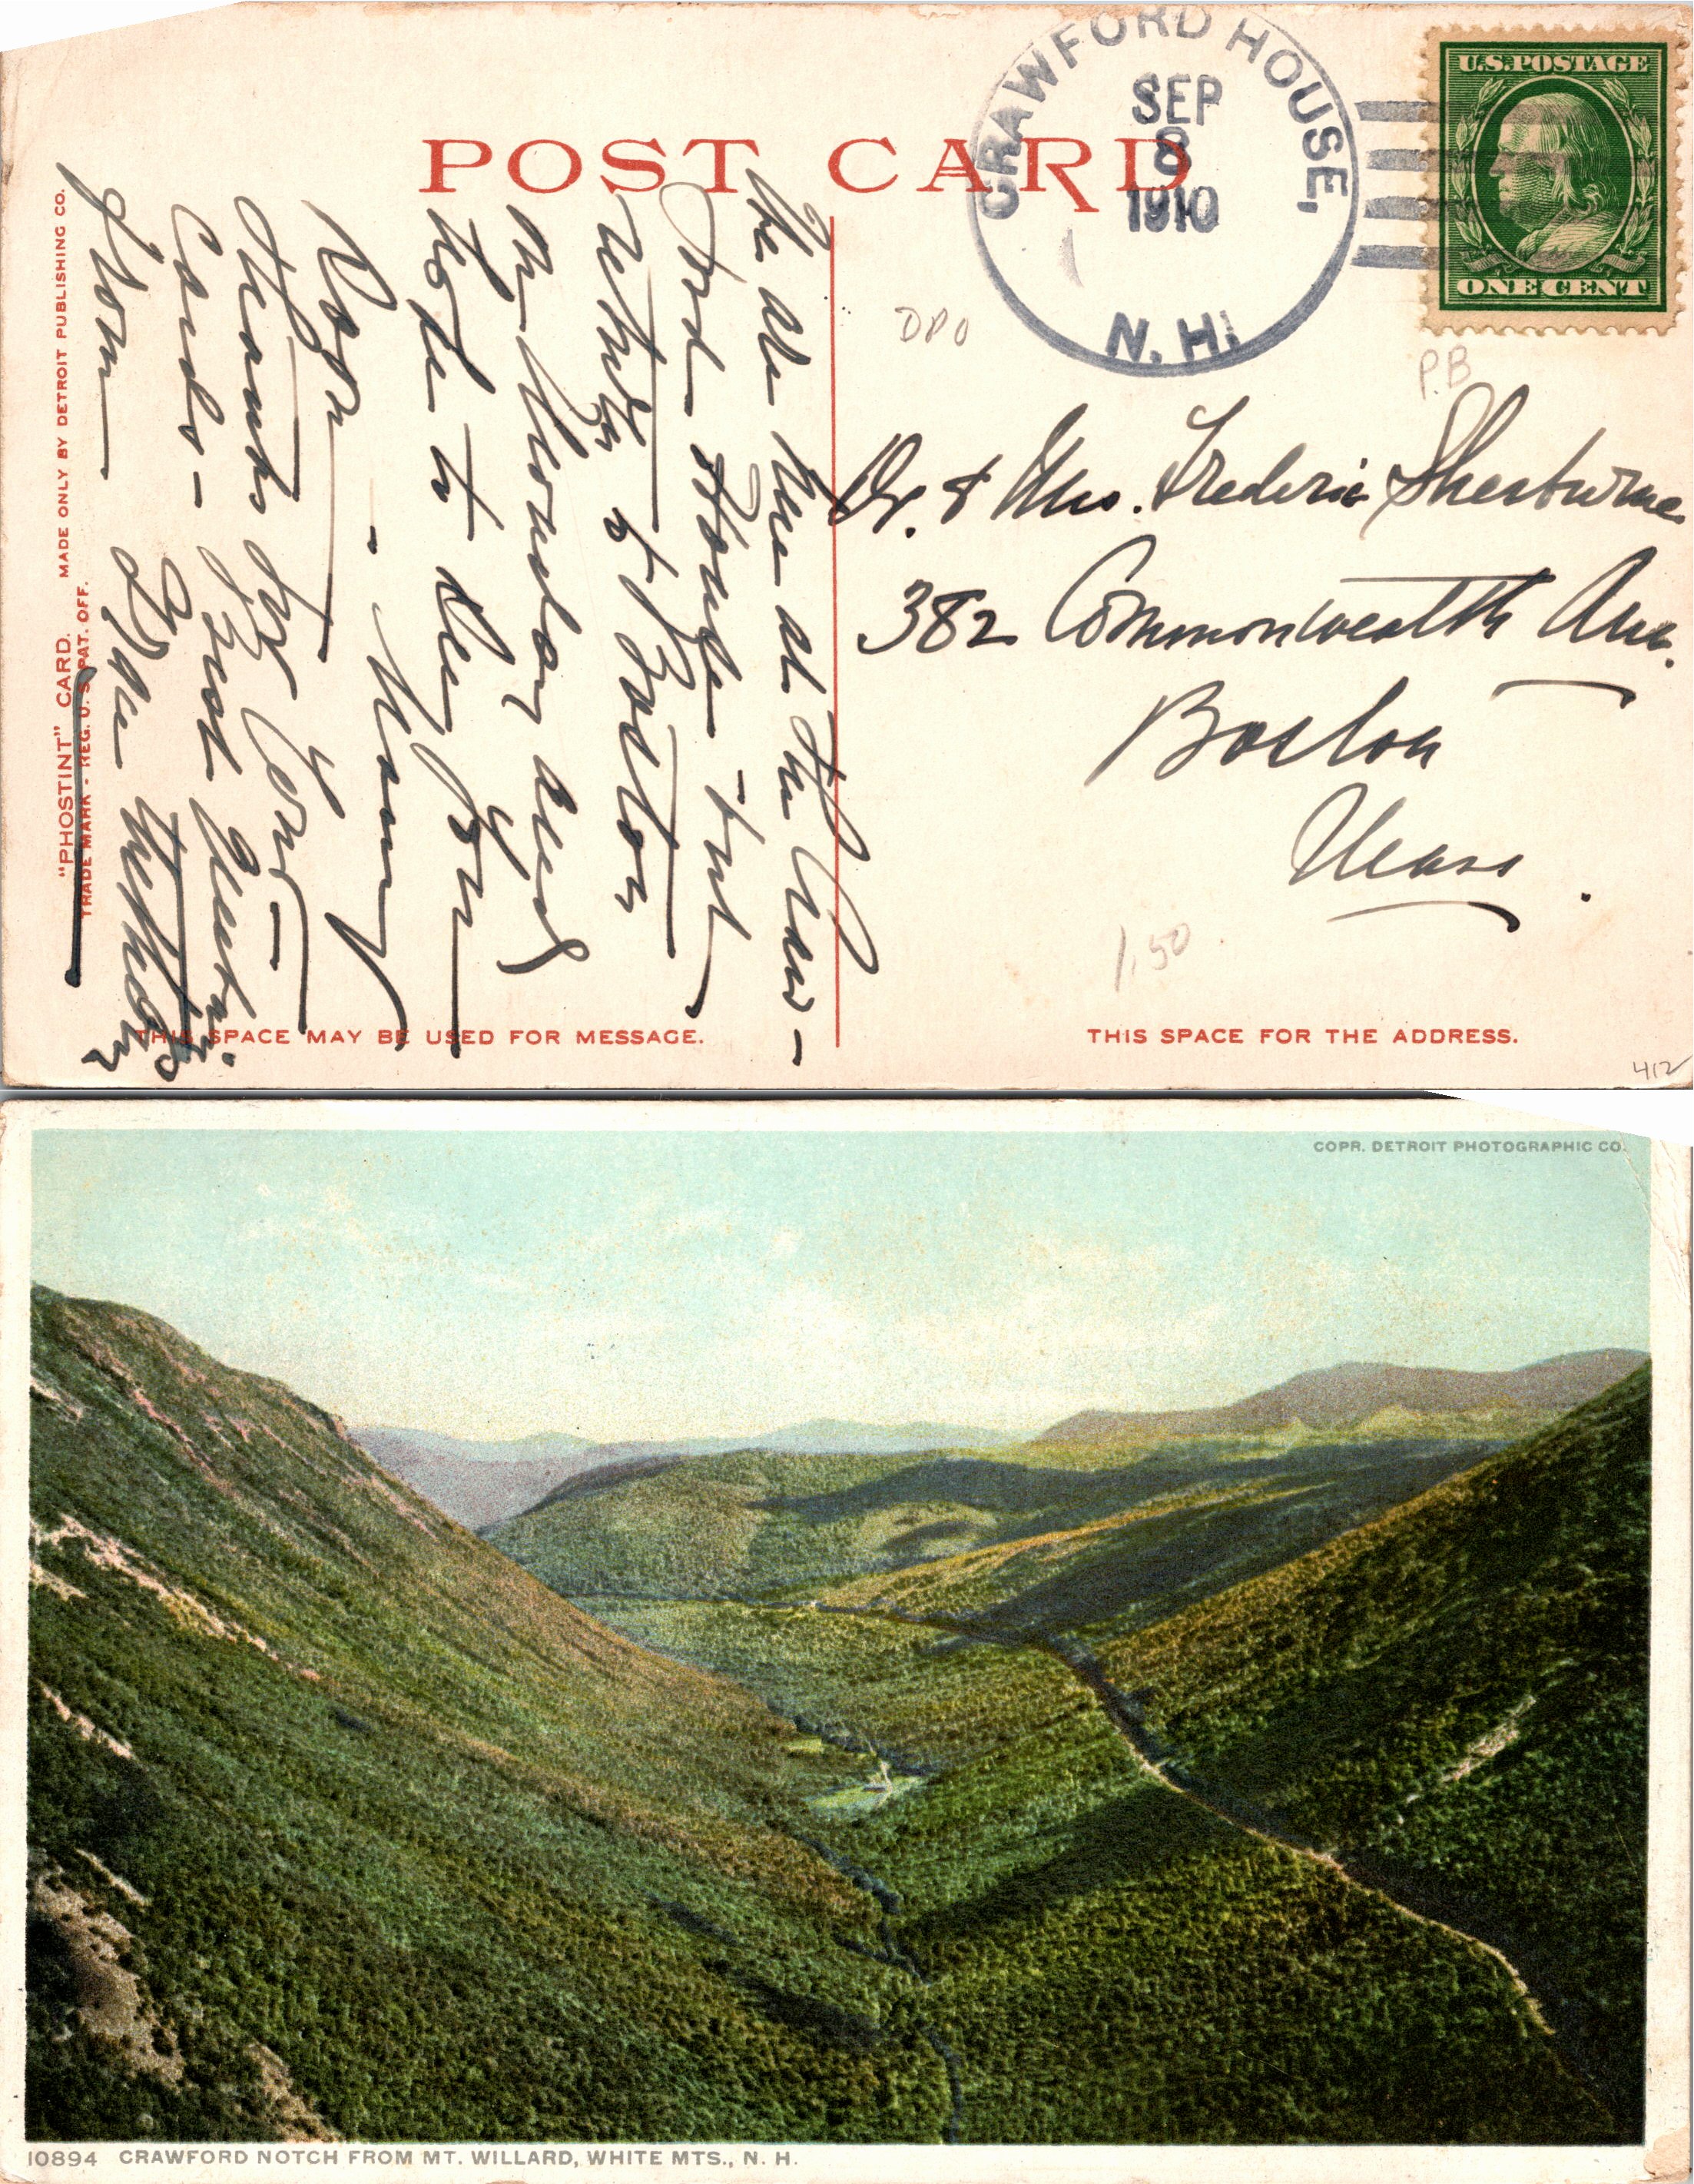 POST CARD
CRAWFORD HOUSE,
SEP
8
1910
N. H.
U.S. POSTAGE
ONE CENT
DPO
P.B
We are here at the Craw-
ford House - but
return to Boston
on Monday and
hope to see you
soon - Many
thanks for your
cards -
from
Dr. & Mrs. Frederic Sherburne
382 Commonwealth Ave.
Boston
Mass.
1.50
"PHOSTINT" CARD. MADE ONLY BY DETROIT PUBLISHING CO.
TRADE MARK - REG. U. S. PAT. OFF.
THIS SPACE MAY BE USED FOR MESSAGE.
THIS SPACE FOR THE ADDRESS.
412
COPR. DETROIT PHOTOGRAPHIC CO.
10894 CRAWFORD NOTCH FROM MT. WILLARD, WHITE MTS., N. H.